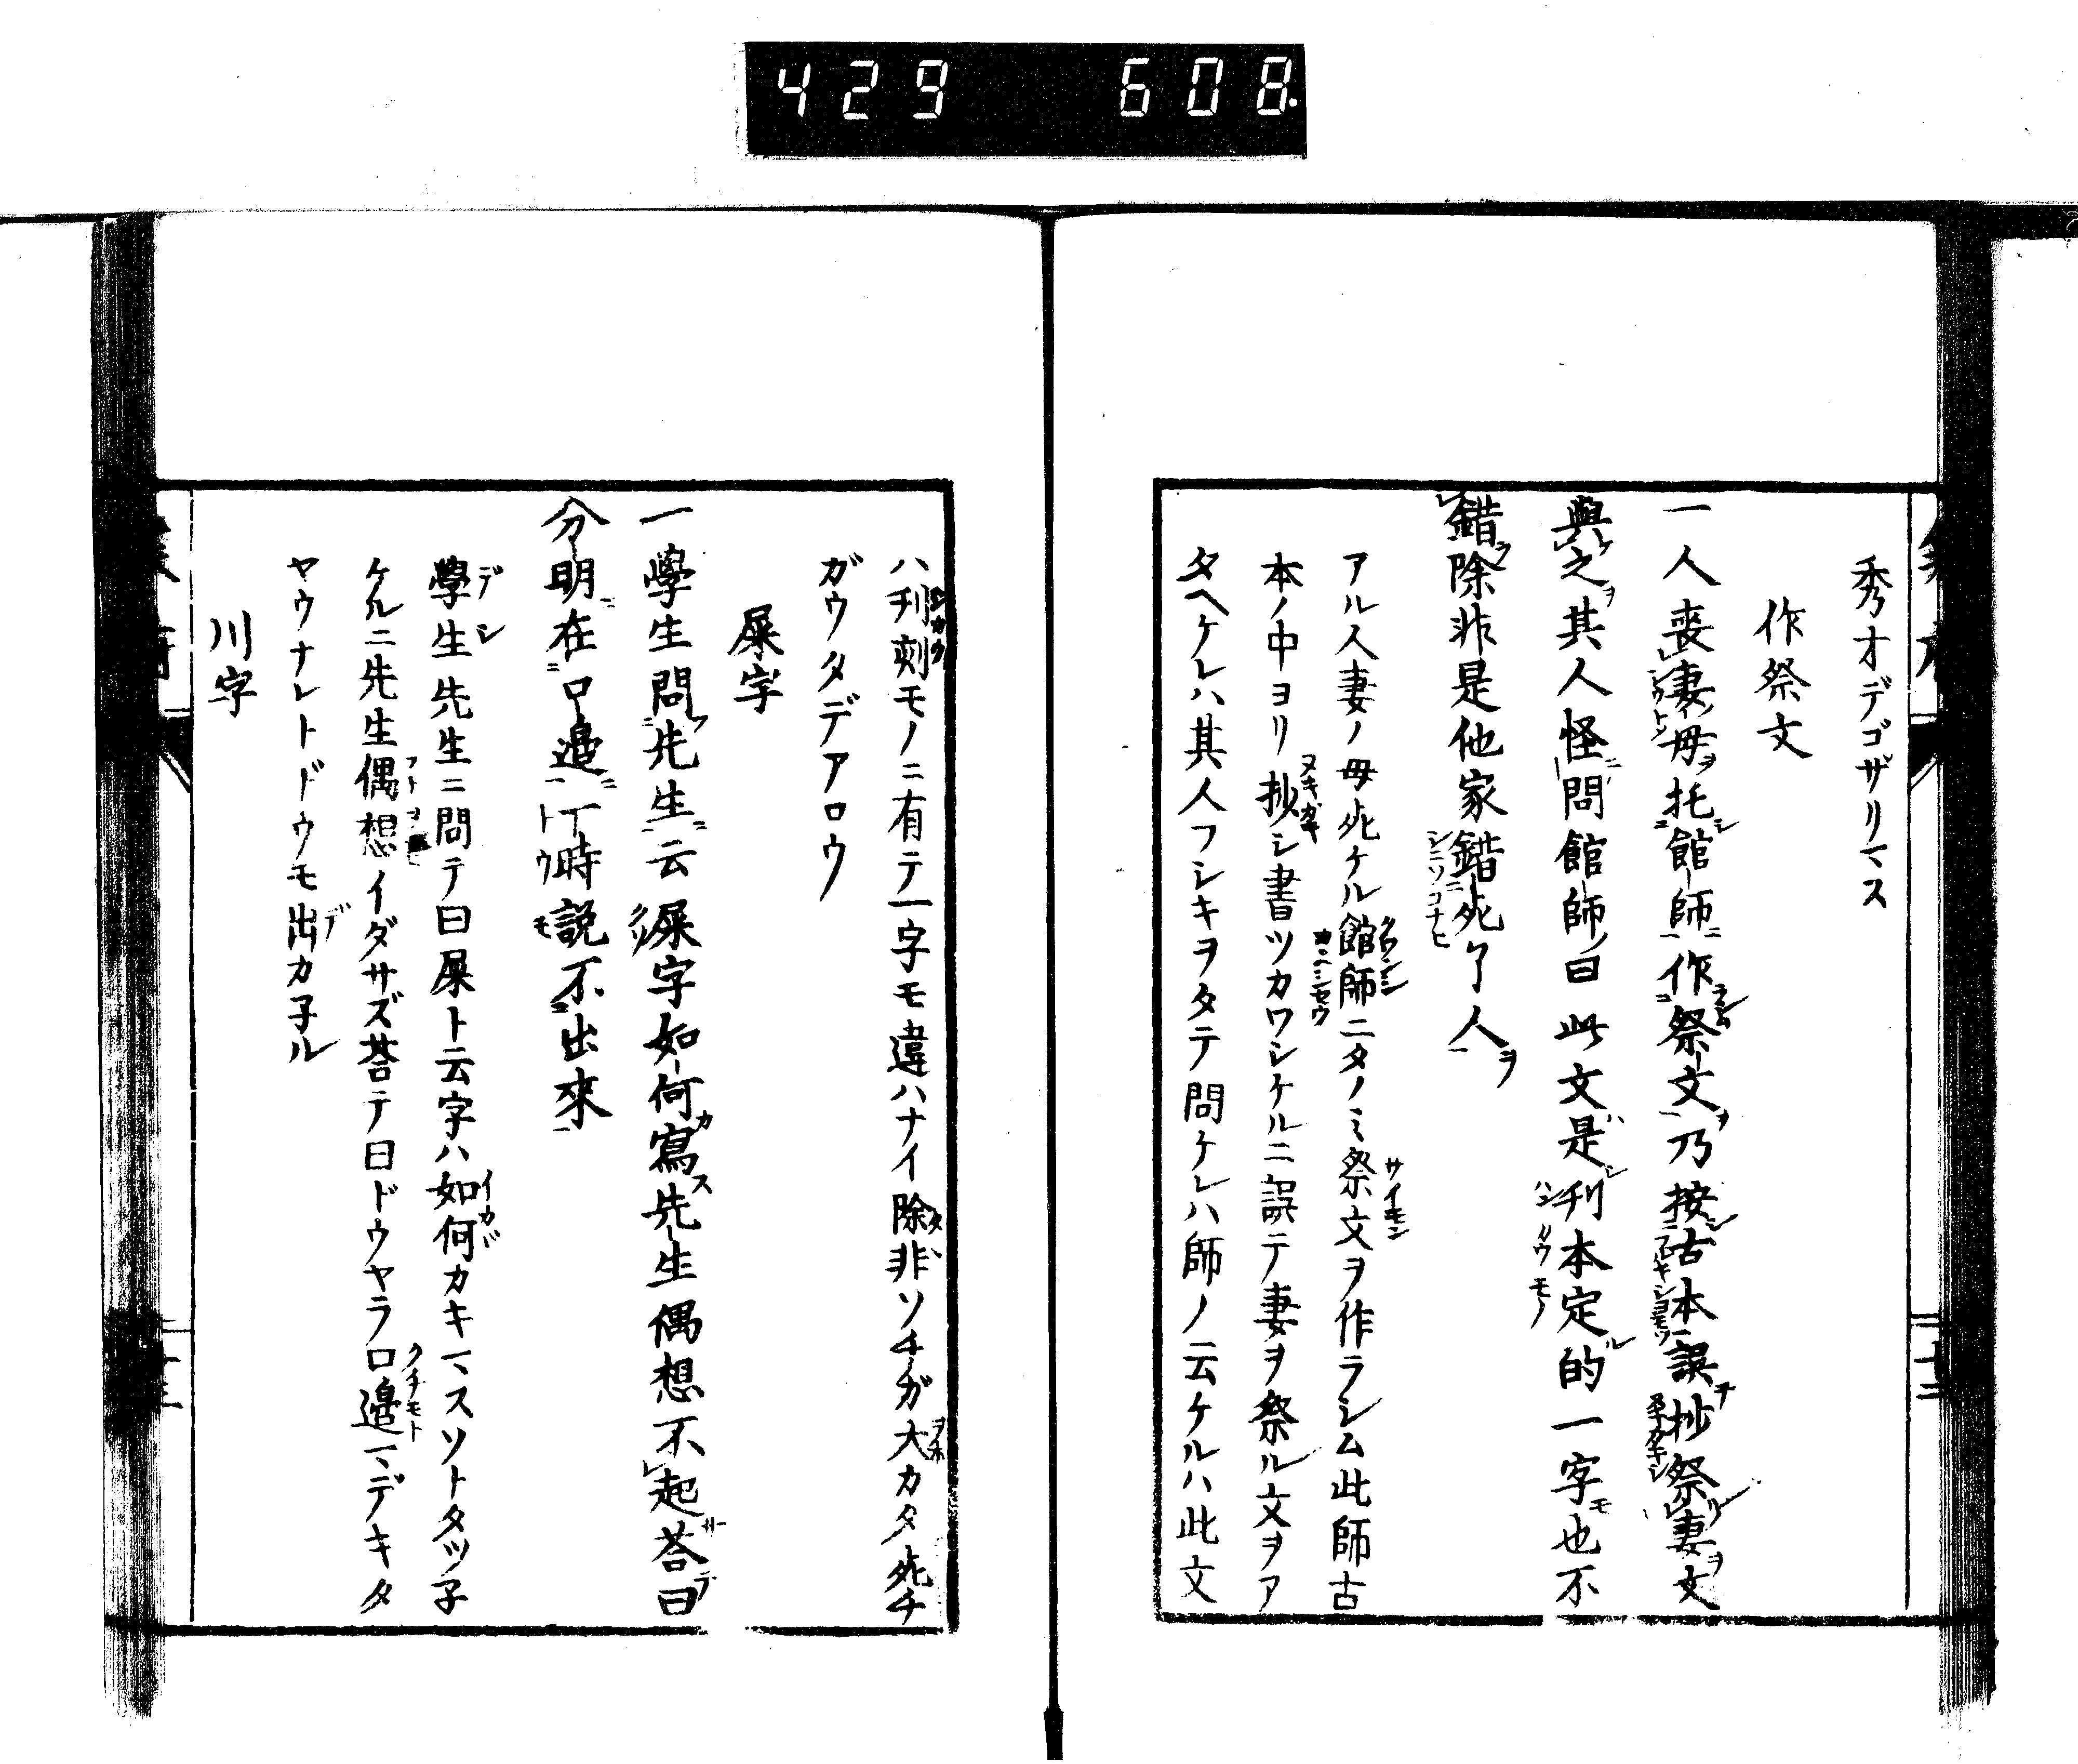 429 608.
秀才デゴザリマス
作祭文
一人喪妻母托館師作祭文乃按古本誤抄祭妻文
與之其人怪問館師曰此文是刊本定的一字也不
錯除非是他家錯死了人
アル人妻ノ母死ケル館師ニタノミ祭文ヲ作ラシム此師古
本ノ中ヨリ抄シ書ツカワシケルニ誤テ妻ヲ祭ル文ヲア
タヘケレハ其人フシキヲタテ問ケレハ師ノ云ケルハ此文
ハ刊刻モノニ有テ一字モ違ハナイ除非ソチガ大カタ死チ
ガウタデアロウ
屎字
一學生問先生云屎字如何寫先生偶想不起荅曰
分明在口邉丁時説不出來
學生先生ニ問テ曰屎ト云字ハ如何カキマスソトタツ子
ケルニ先生偶想イダサズ荅テ曰ドウヤラ口邉マデキタ
ヤウナレトドウモ出カ子ル
川字